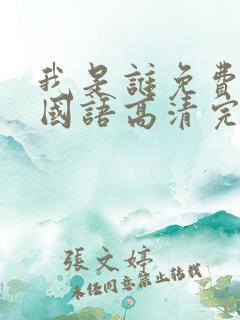 我是誰免費
國語高清完
張文婷
未经同意禁止转载